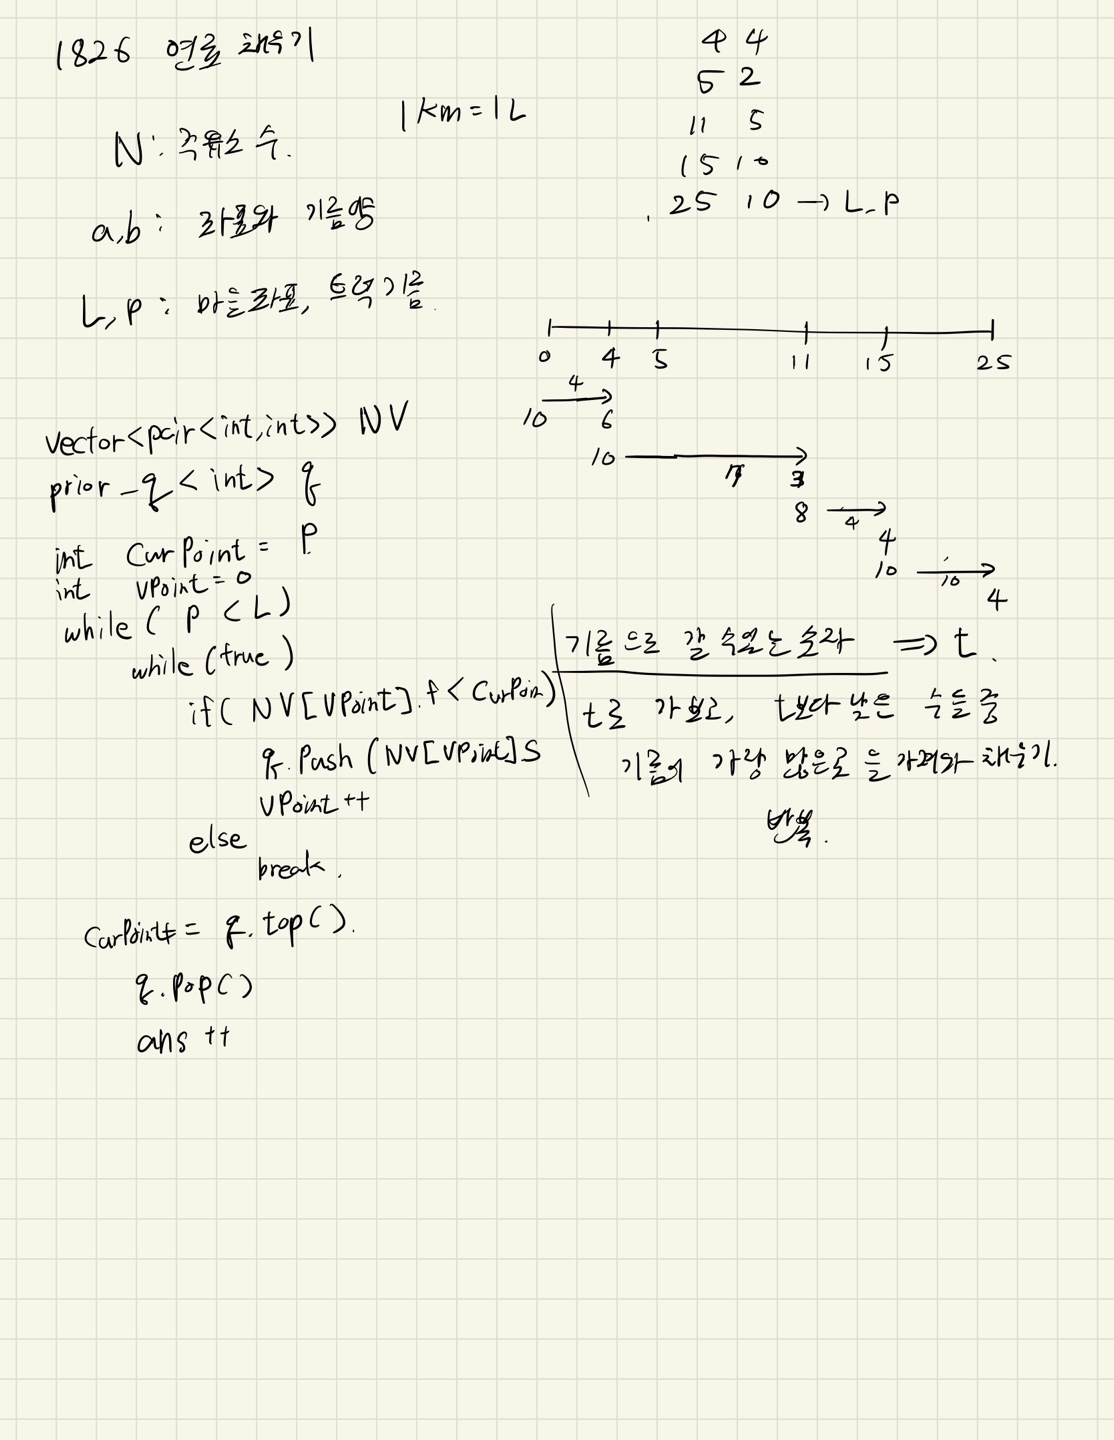 1826 연료 채우기
1km = 1L
N : 주유소 수.
a,b : 좌표와 기름양
L, P : 마을좌표, 트럭기름.
4 4
5 2
11 5
15 10
25 10 → L, P
0 4 5 11 15 25
4
10 6
10 7 3
8 4
4
10 10
4
vector<pair<int,int>> NV
prior_q <int> q
int CurPoint = P
int VPoint = 0
while ( P < L )
while (true)
if( NV[VPoint].f < CurPoin)
q.Push (NV[VPoint]S
VPoint ++
else
break.
CurPoint += q.top().
q.pop()
ans ++
기름으로 갈 수있는 숫자 ⇒ t.
t로 가보고, t보다 낮은 수들 중
기름이 가장 많은로 들 가져와 채우기.
반복.